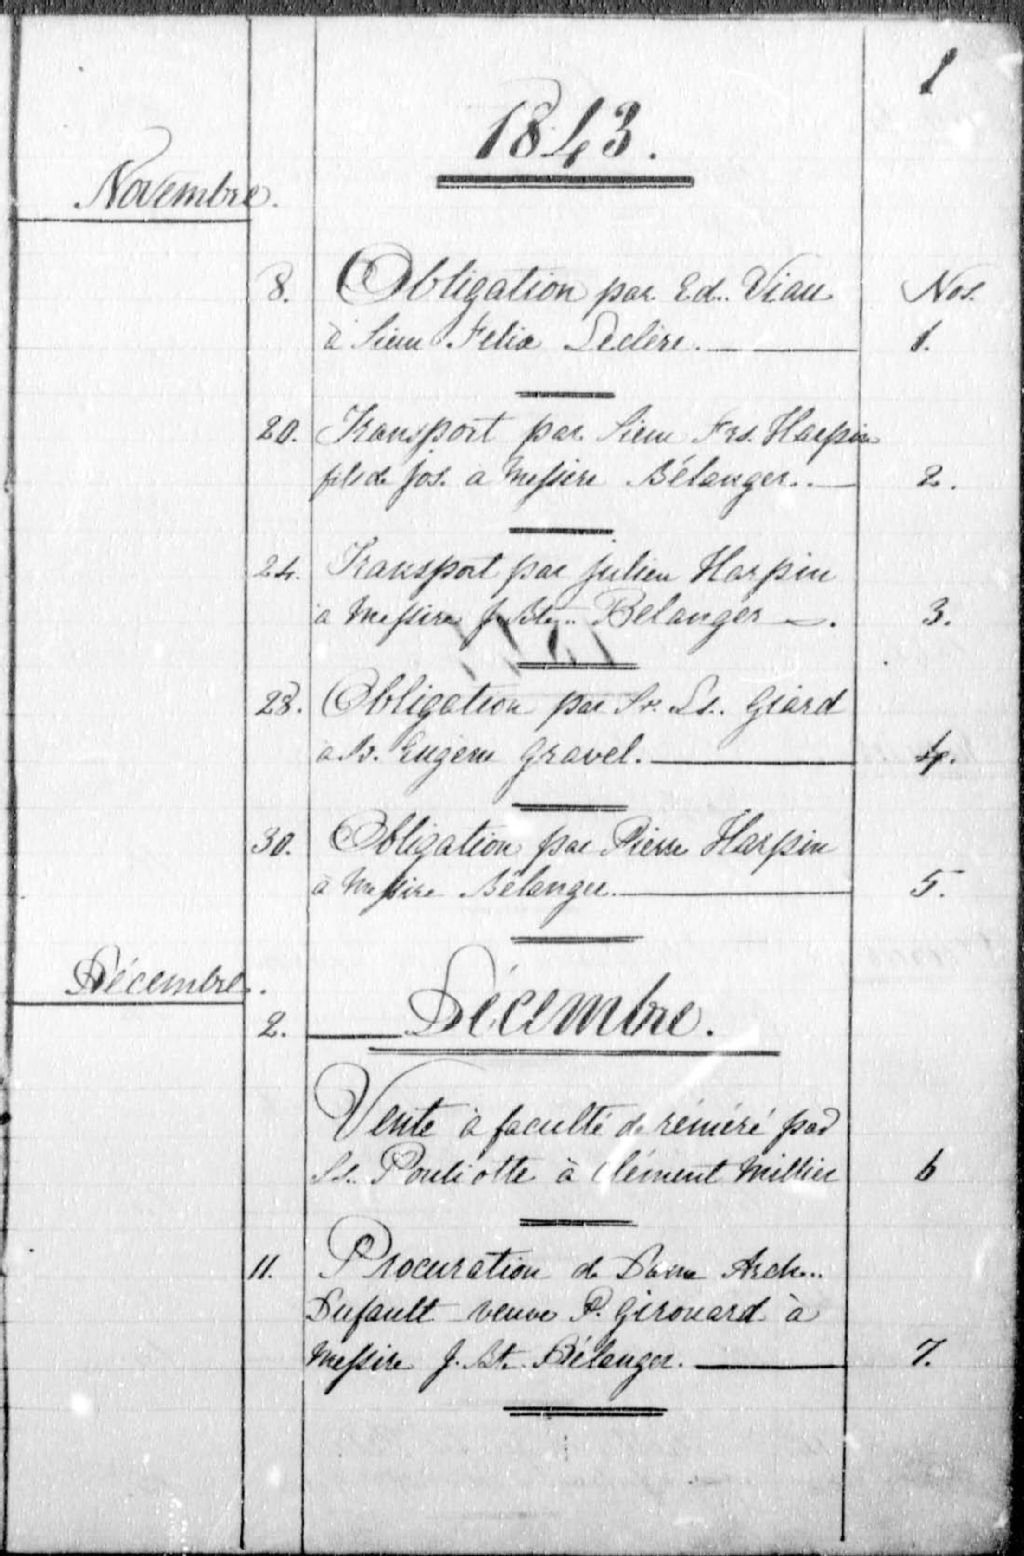 1
1843.
Novembre.
8. Obligation par Ed. Viau Nos.
à Sieur Felix Leclère. 1.
20. Transport par Sieur Frs. Harpin
fils de Jos. a Messire Bélanger.. 2.
24. Transport par Julien Harpin
a Messire J. Bte. Belanger. 3.
28. Obligation par Sr. Ls.. Giard
a Sr. Eugène Gravel. 4.
30. Obligation par Pierre Harpin
à Messire Bélanger. 5.
Décembre.
2. Décembre.
Vente à faculté de réméré par
Ls.. Pouliotte à Clément Millier 6
11. Procuration de Dame Arch...
Dufault veuve P. Girouard à
Messire J. Bt. Bélanger. 7.